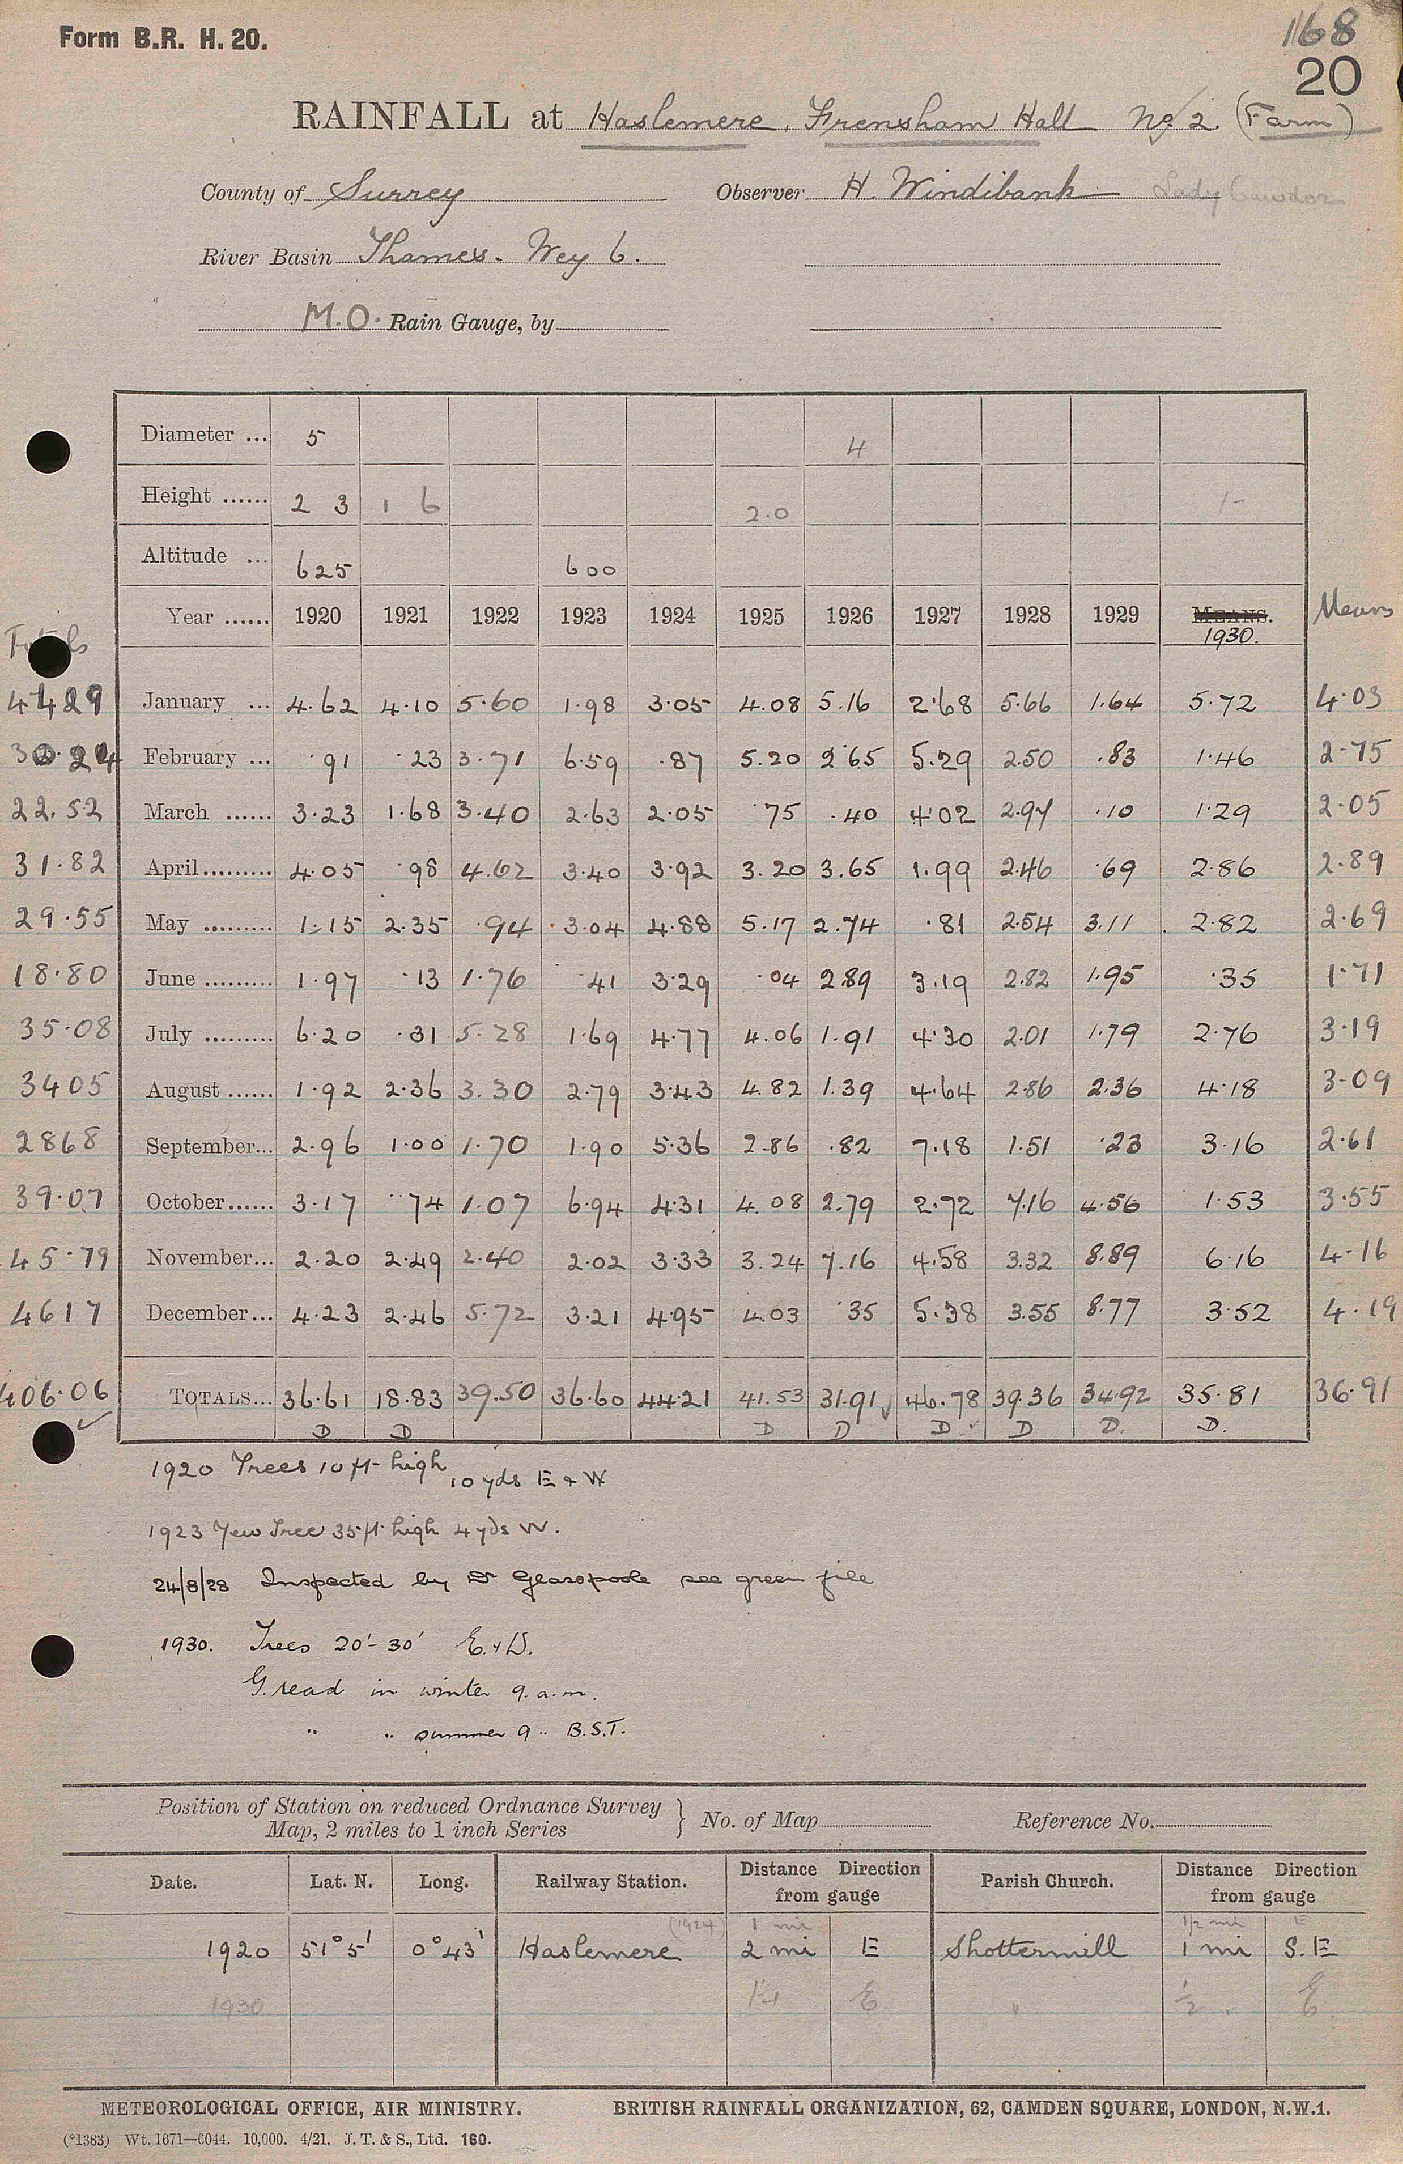 Form B.R. H. 20.
168
20
RAINFALL at Haslemere, Frensham Hall No 2 (Farm)
County of Surrey Observer H. Windibank Lady Cawdor
River Basin Thames. Wey 6.
M.O. Rain Gauge, by
Diameter ... 5 4
Height ...... 2 3 1 6 2.0 1-
Altitude ... 625 600
Year ...... 1920 1921 1922 1923 1924 1925 1926 1927 1928 1929 MEANS. 1930. Means
4429 January ... 4.62 4.10 5.60 1.98 3.05 4.08 5.16 2.68 5.66 1.64 5.72 4.03
30.24 February ... .91 .23 3.71 6.59 .87 5.20 2.65 5.29 2.50 .83 1.46 2.75
22.52 March ...... 3.23 1.68 3.40 2.63 2.05 .75 .40 4.02 2.97 .10 1.29 2.05
31.82 April......... 4.05 .98 4.62 3.40 3.92 3.20 3.65 1.99 2.46 .69 2.86 2.89
29.55 May ......... 1.15 2.35 .94 3.04 4.88 5.17 2.74 .81 2.54 3.11 2.82 2.69
18.80 June ......... 1.97 .13 1.76 .41 3.29 .04 2.89 3.19 2.82 1.95 .35 1.71
35.08 July ......... 6.20 .31 5.28 1.69 4.77 4.06 1.91 4.30 2.01 1.79 2.76 3.19
3405 August ...... 1.92 2.36 3.30 2.79 3.43 4.82 1.39 4.64 2.86 2.36 4.18 3.09
2868 September... 2.96 1.00 1.70 1.90 5.36 2.86 .82 7.18 1.51 .23 3.16 2.61
39.07 October...... 3.17 .74 1.07 6.94 4.31 4.08 2.79 2.72 7.16 4.56 1.53 3.55
45.79 November... 2.20 2.49 2.40 2.02 3.33 3.24 7.16 4.58 3.32 8.89 6.16 4.16
4617 December... 4.23 2.46 5.72 3.21 4.95 4.03 .35 5.38 3.55 8.77 3.52 4.19
406.06 TOTALS... 36.61 18.83 39.50 36.60 44.21 41.53 31.91 46.78 39.36 34.92 35.81 36.91
D D D D D D D. D.
1920 Trees 10 ft high 10 yds E & W
1923 Yew Tree 35 ft high 4 yds W.
24/8/28 Inspected by Dr Glasspoole see green file
1930. Trees 20'- 30' E. & W.
G. read in winter 9 a.m.
" " summer 9 " B.S.T.
Position of Station on reduced Ordnance Survey
Map, 2 miles to 1 inch Series } No. of Map Reference No.
Date. Lat. N. Long. Railway Station. Distance Direction from gauge Parish Church. Distance Direction from gauge
(1924) 1 mi 1/2 mi E
1920 51°5' 0°43' Haslemere 2 mi E Shottermill 1 mi S.E
1930 1¼ E " ½ . E
METEOROLOGICAL OFFICE, AIR MINISTRY. BRITISH RAINFALL ORGANIZATION, 62, CAMDEN SQUARE, LONDON, N.W.1.
(*1383) Wt. 1671—6044. 10,000. 4/21. J. T. & S., Ltd. 160.